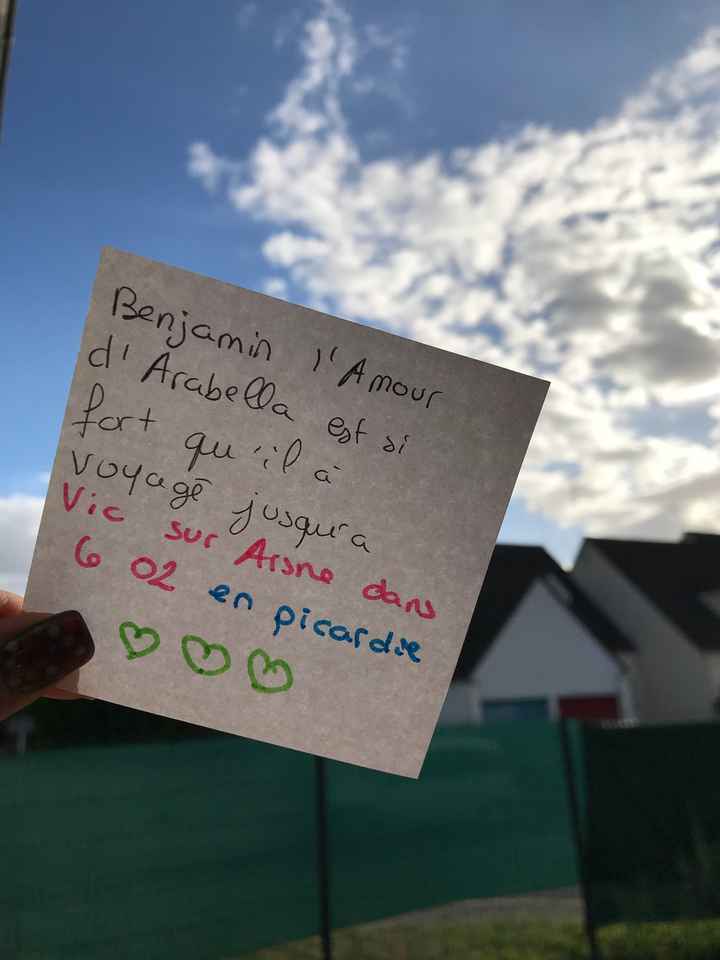 Benjamin l'Amour
d'Arabella est si
fort qu'il à
voyagé jusqu'a
Vic sur Aisne dans
6 02 en picardie